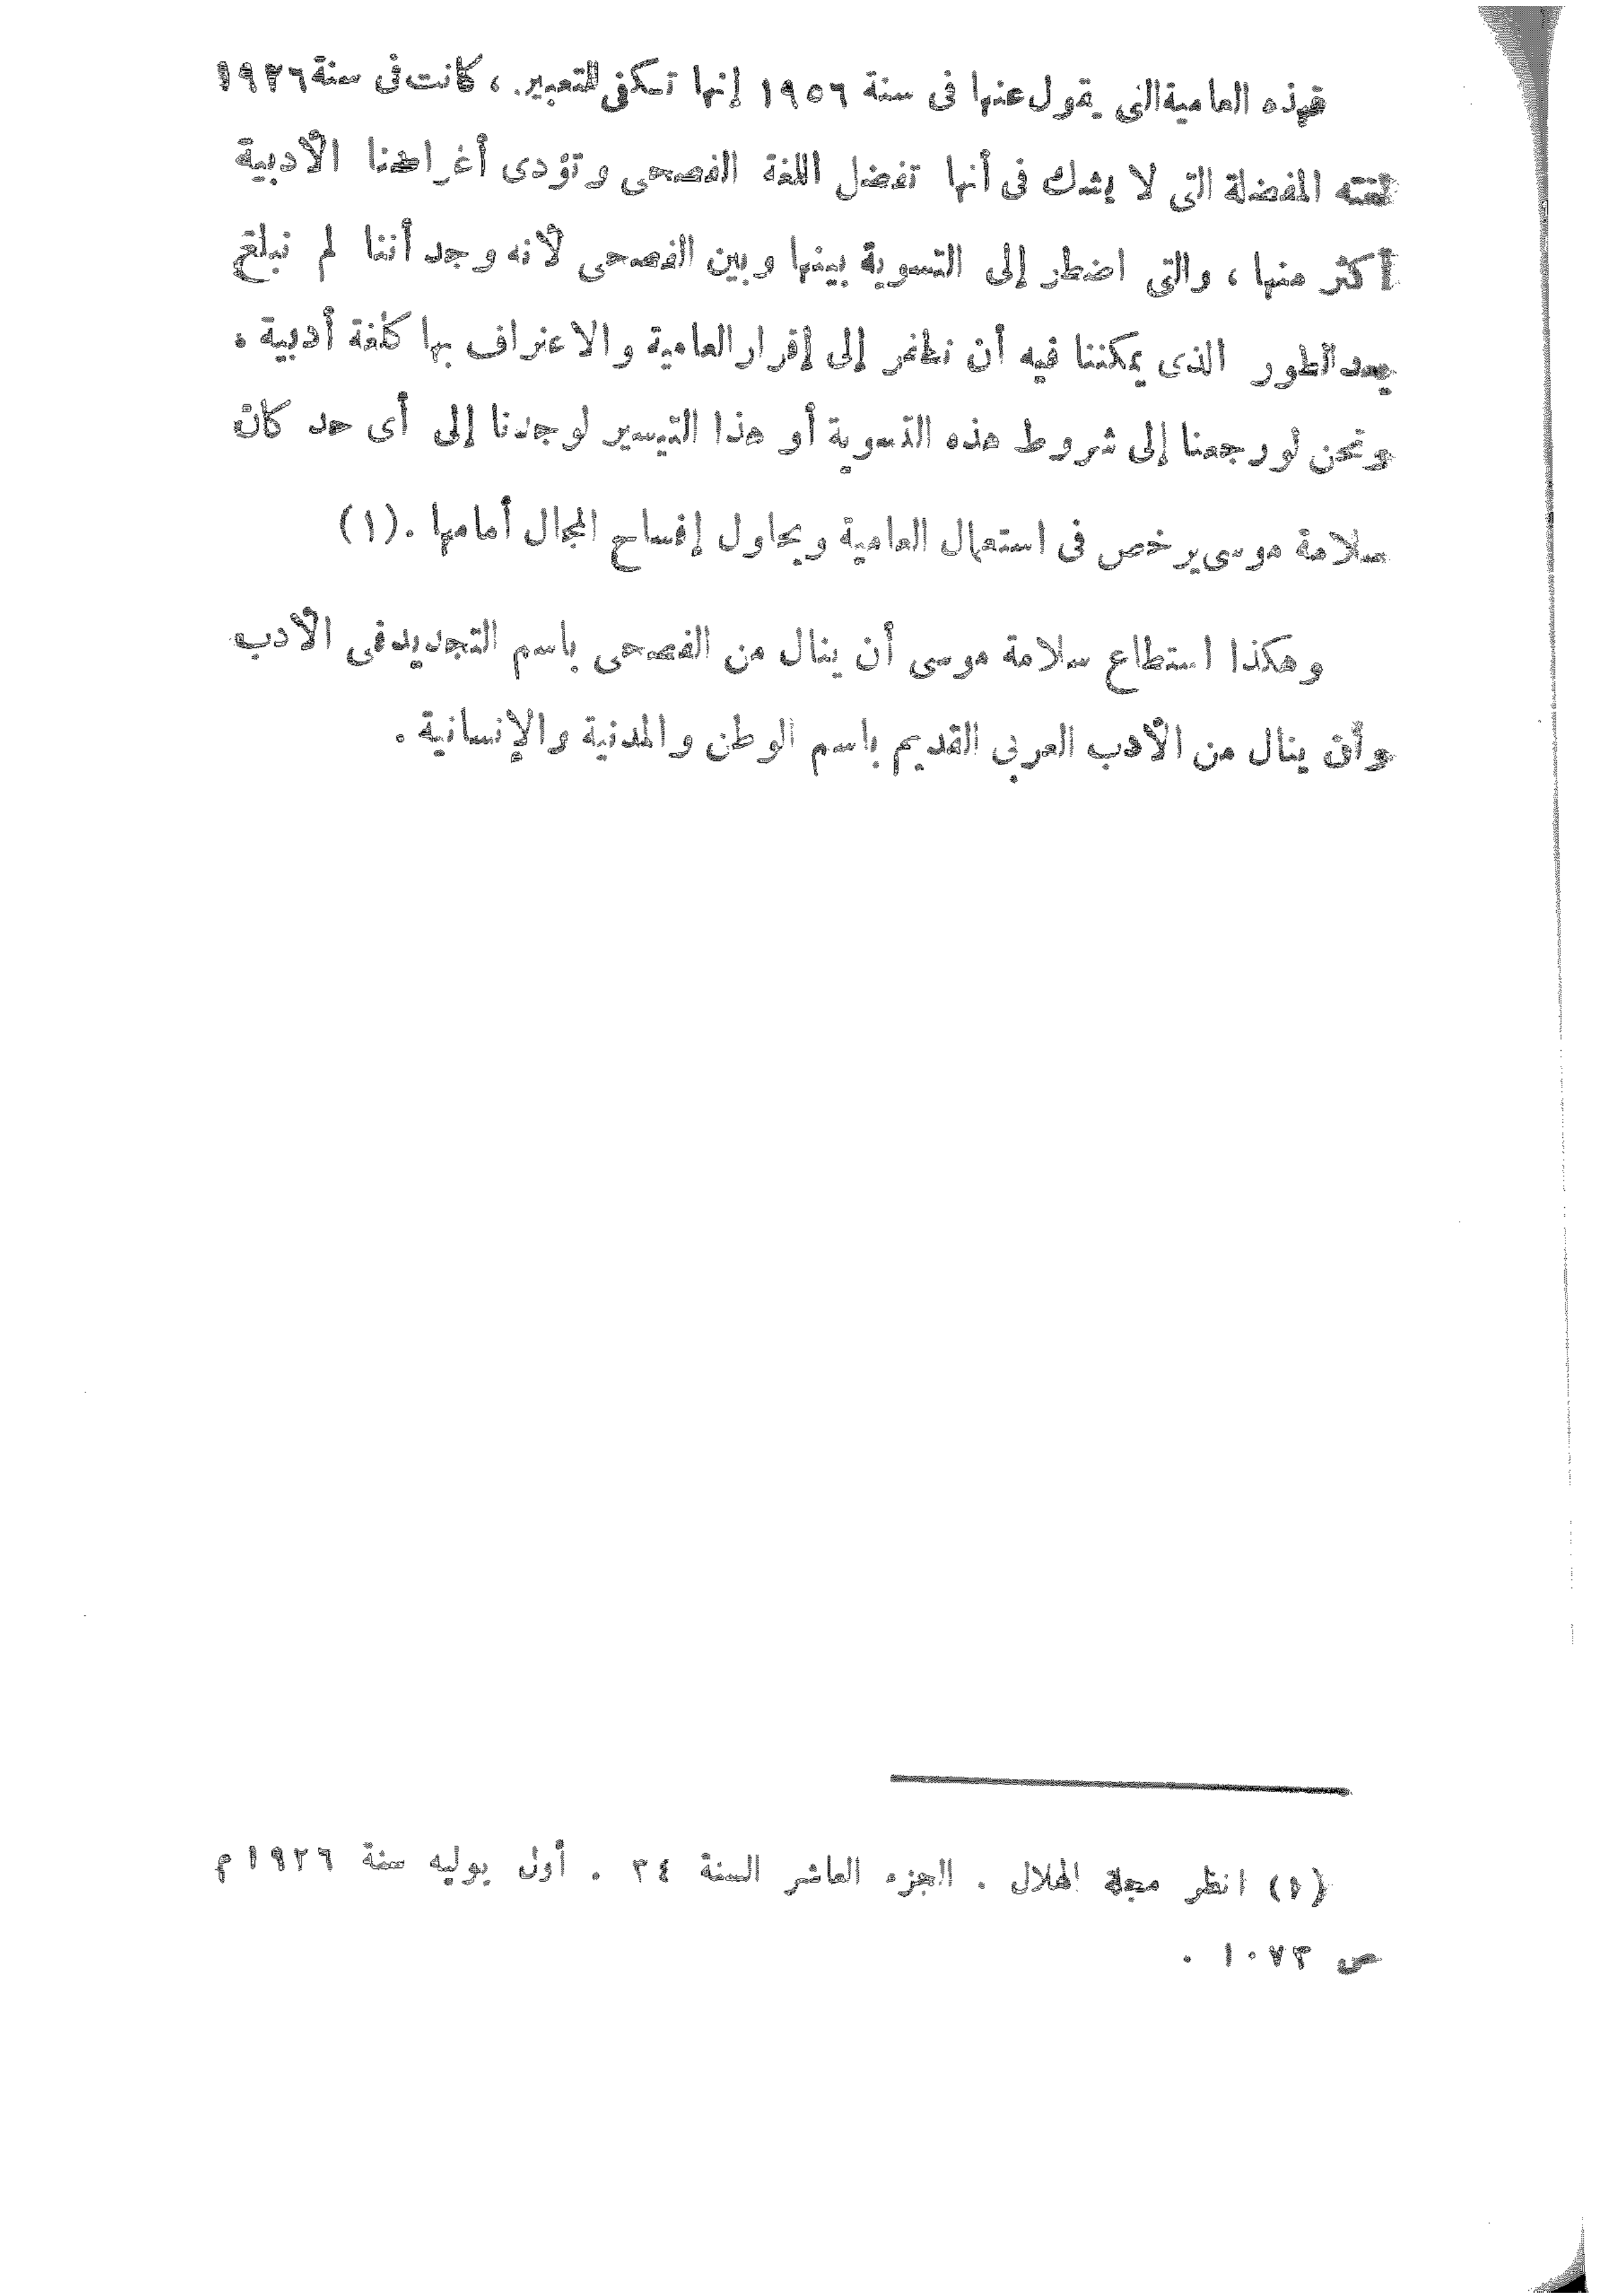 فهذه العامية التى يقول عنها فى سنة ١٩٥٦ إنها تكفى للتعبير. ، كانت فى سنة ١٩٢٦
لغته المفضلة التى لا يشك فى أنها تفضل اللغة الفصحى وتؤدى أغراضنا الأدبية
أكثر منها ، والتى اضطر إلى التسوية بينها وبين الفصحى لأنه وجد أننا لم نبلغ
بعد الطور الذى يمكننا فيه أن نطفر إلى إقرار العامية والاعتراف بها كلغة أدبية .
ونحن لو رجعنا إلى شروط هذه التسوية أو هذا التيسير لوجدنا إلى أى حد كان
سلامة موسى يرخص فى استعمال العامية ويحاول إفساح المجال أمامها . (١)
وهكذا استطاع سلامة موسى أن ينال من الفصحى باسم التجديد فى الأدب
وأن ينال من الأدب العربى القديم باسم الوطن والمدنية والإنسانية .
(١) انظر مجلة الهلال . الجزء العاشر السنة ٣٤ . أول يوليه سنة ١٩٢٦ م
ص ١٠٧٣ .